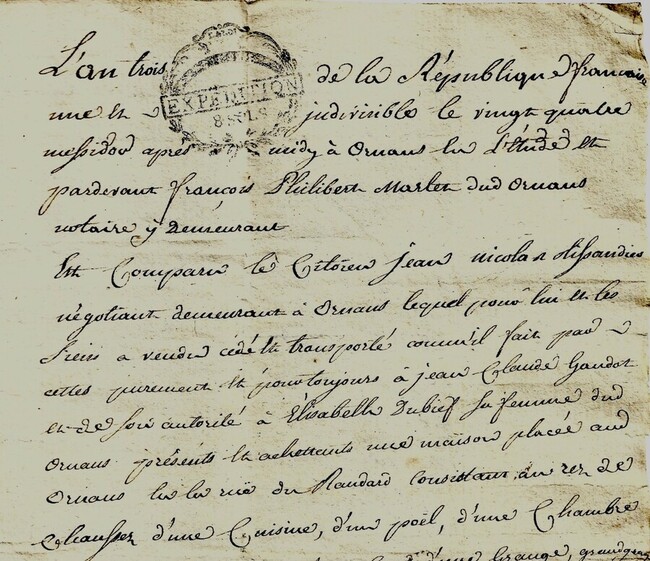 L'an trois de la République française
une et indivisible le vingt quatre
EXPEDITION
8 SOLS
messidor après midy à Ornans en l'Etude et
pardevant françois Philibert Marlet dud Ornans
notaire y demeurant
Est Comparu le Citoien jean nicolas
négotiant demeurant à Ornans lequel pour lui et les
siens a vendu cédé et transporté comm'il fait par
cettes purement et pour toujours à jean Claude Gaudot
et de son autorité à Elisabeth Dubief sa femme dud
Ornans présents et achettants une maison placée aud
Ornans en la ruë du consistant en rez de
chaussez d'une Cuisine, d'un poël, d'une Chambre
d'une Grange,